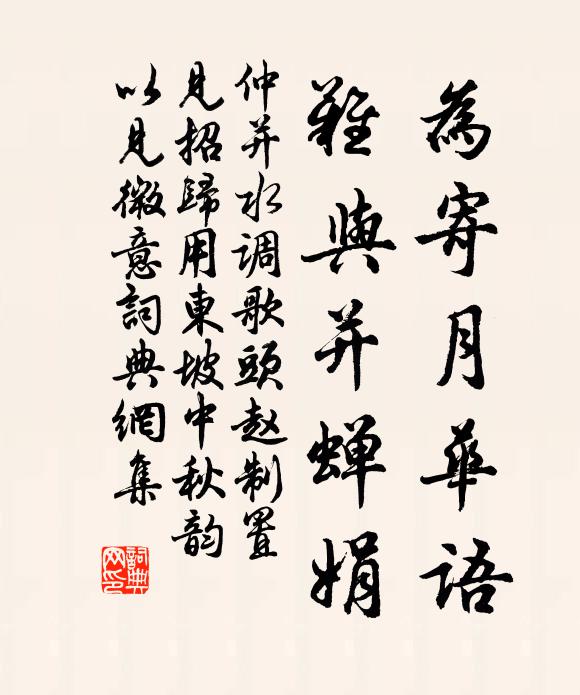 為寄月華語
難與并蟬娟
仲并水调歌頭赵制置
見招歸用東坡中秋韵
以見微意詞典網集
詞典网印